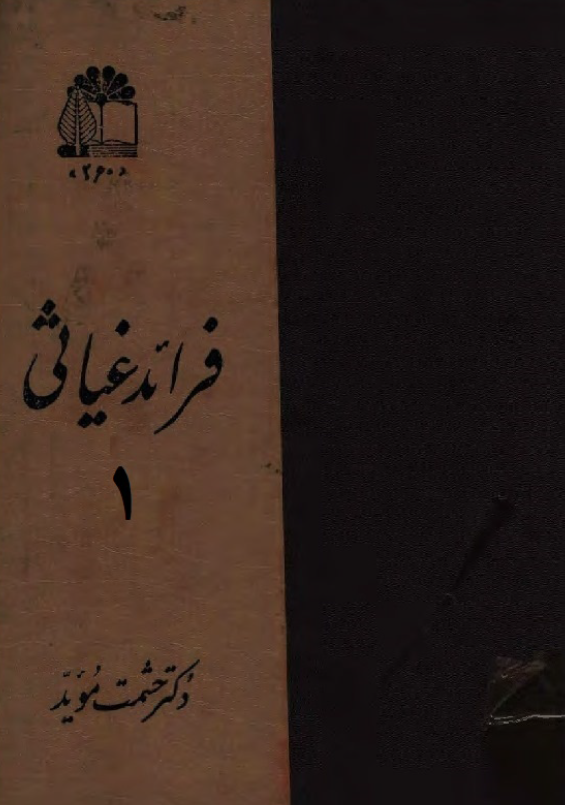 «۲۶۰»
فرائد غیاثی
۱
دکتر حشمت مؤیّد